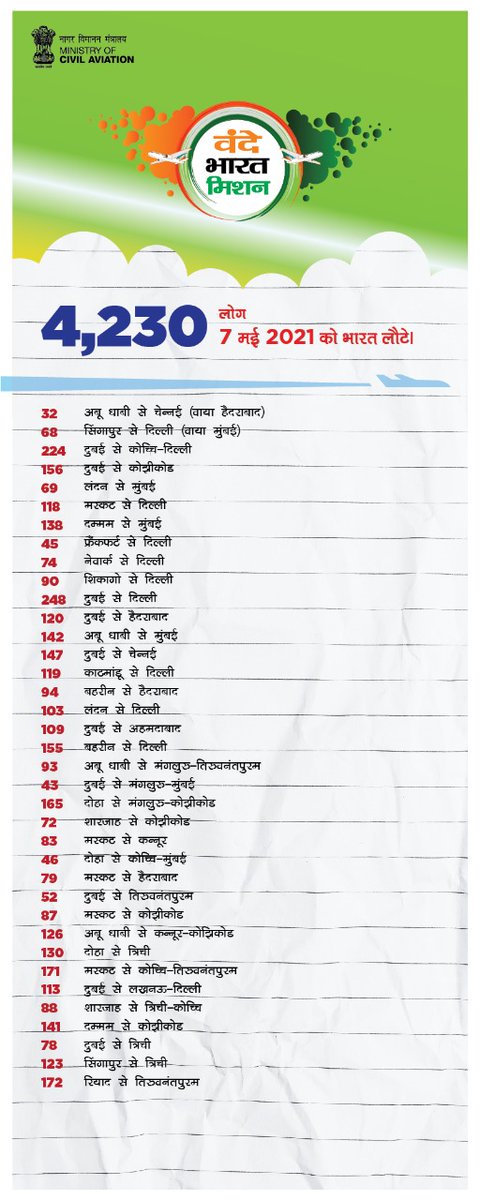 नागर विमानन मंत्रालय
MINISTRY OF
CIVIL AVIATION
वंदे
भारत
मिशन
4,230 लोग
7 मई 2021 को भारत लौटे।
32 अबू धाबी से चेन्नई (वाया हैदराबाद)
68 सिंगापुर से दिल्ली (वाया मुंबई)
224 दुबई से कोच्चि-दिल्ली
156 दुबई से कोझीकोड
69 लंदन से मुंबई
118 मस्कट से दिल्ली
138 दम्मम से मुंबई
45 फ्रैंकफर्ट से दिल्ली
74 नेवार्क से दिल्ली
90 शिकागो से दिल्ली
248 दुबई से दिल्ली
120 दुबई से हैदराबाद
142 अबू धाबी से मुंबई
147 दुबई से चेन्नई
119 काठमांडू से दिल्ली
94 बहरीन से हैदराबाद
103 लंदन से दिल्ली
109 दुबई से अहमदाबाद
155 बहरीन से दिल्ली
93 अबू धाबी से मंगलुरु-तिरुवनंतपुरम
43 दुबई से मंगलुरु-मुंबई
165 दोहा से मंगलुरु-कोझीकोड
72 शारजाह से कोझीकोड
83 मस्कट से कन्नूर
46 दोहा से कोच्चि-मुंबई
79 मस्कट से हैदराबाद
52 दुबई से तिरुवनंतपुरम
87 मस्कट से कोझीकोड
126 अबू धाबी से कन्नूर-कोझिकोड
130 दोहा से त्रिची
171 मस्कट से कोच्चि-तिरुवनंतपुरम
113 दुबई से लखनऊ-दिल्ली
88 शारजाह से त्रिची-कोच्चि
141 दम्मम से कोझीकोड
78 दुबई से त्रिची
123 सिंगापुर से त्रिची
172 रियाद से तिरुवनंतपुरम